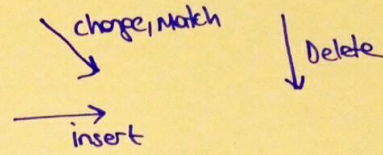 change, Match
Delete
insert